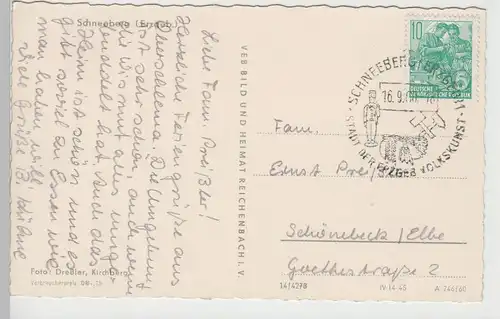 Schneeberg (Erzgeb.)
Liebe Fam. Preißler!
Herzliche Feriengrüße aus
Oberschlema. Die Umgebung
ist sehr schön, auch wenn
die Wismut alles
hat. Auch das
Heim ist schön und es
gibt soviel zu Essen wie
man haben will.
Viele Grüße B.
Foto: Dreßler, Kirchberg
Verbraucherpreis DM -,20
VEB BILD UND HEIMAT REICHENBACH I. V.
10
DEUTSCHE
DEMOKRATISCHE REPUBLIK
SCHNEEBERG (ERZGEB)
16.9.
STADT DER ERZGEB VOLKSKUNST
Fam.
Ernst Preißler
Schönebeck / Elbe
Goethestraße 2
14/4298 IV-14-45 A 246/60